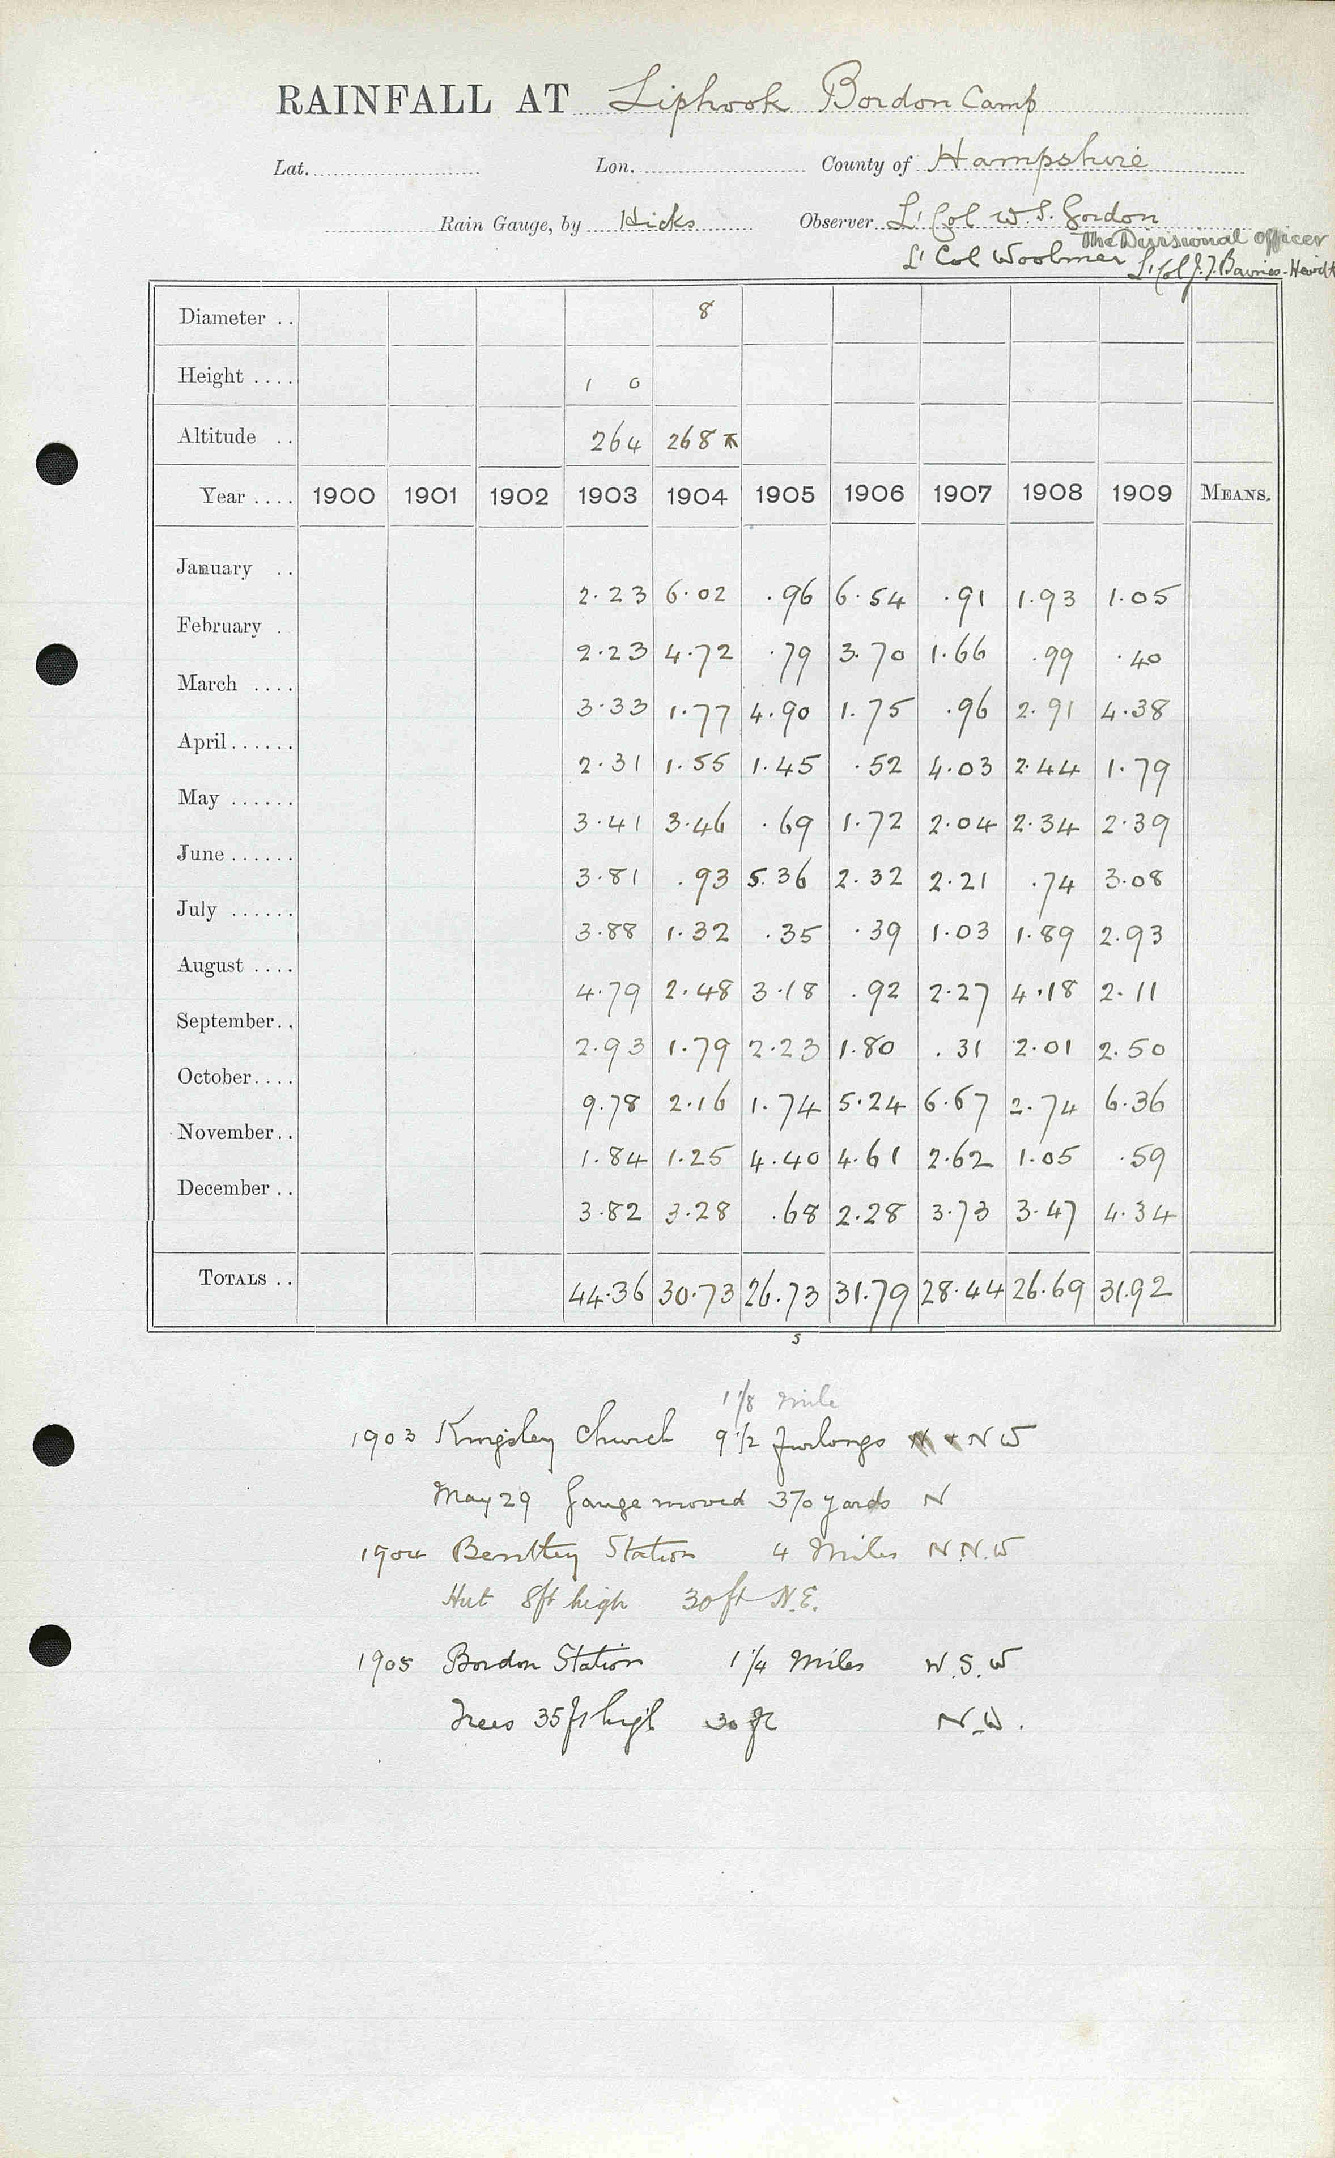 RAINFALL AT Liphook Bordon Camp
Lat. Lon. County of Hampshire
Rain Gauge, by Hicks Observer Lt Col W. S. Gordon
The Divisional Officer
Lt Col Woolmer Lt Col J. J.
Diameter .. 8
Height .... 1 0
Altitude .. 264 268
Year .... 1900 1901 1902 1903 1904 1905 1906 1907 1908 1909 MEANS.
January .. 2.23 6.02 .96 6.54 .91 1.93 1.05
February . 2.23 4.72 .79 3.70 1.66 .99 .40
March .... 3.33 1.77 4.90 1.75 .96 2.91 4.38
April...... 2.31 1.55 1.45 .52 4.03 2.44 1.79
May ...... 3.41 3.46 .69 1.72 2.04 2.34 2.39
June...... 3.81 .93 5.36 2.32 2.21 .74 3.08
July ...... 3.88 1.32 .35 .39 1.03 1.89 2.93
August .... 4.79 2.48 3.18 .92 2.27 4.18 2.11
September.. 2.93 1.79 2.23 1.80 .31 2.01 2.50
October.... 9.78 2.16 1.74 5.24 6.67 2.74 6.36
November.. 1.84 1.25 4.40 4.61 2.62 1.05 .59
December .. 3.82 3.28 .68 2.28 3.73 3.47 4.34
TOTALS .. 44.36 30.73 26.73 31.79 28.44 26.69 31.92
s
1 1/8 mile
1903 Kingsley Church 9 1/2 furlongs NW
May 29 Gauge moved 370 yards N
1904 Bentley Station 4 Miles N.N.W
Hut 8ft high 30ft N.E.
1905 Bordon Station 1 1/4 Miles W.S.W
Trees 35ft high 30 ft N.W.